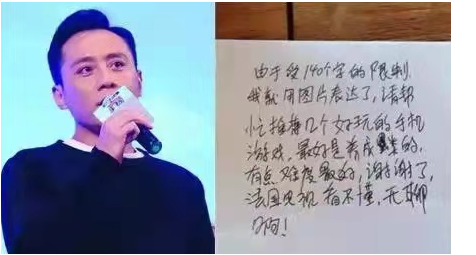 由于受140个字的限制
我就用图片表达了，请帮
忙推荐几个好玩的手机
游戏，最好是养成类的，
有点难度最好，谢谢了，
法国电视看不懂，无聊
啊！